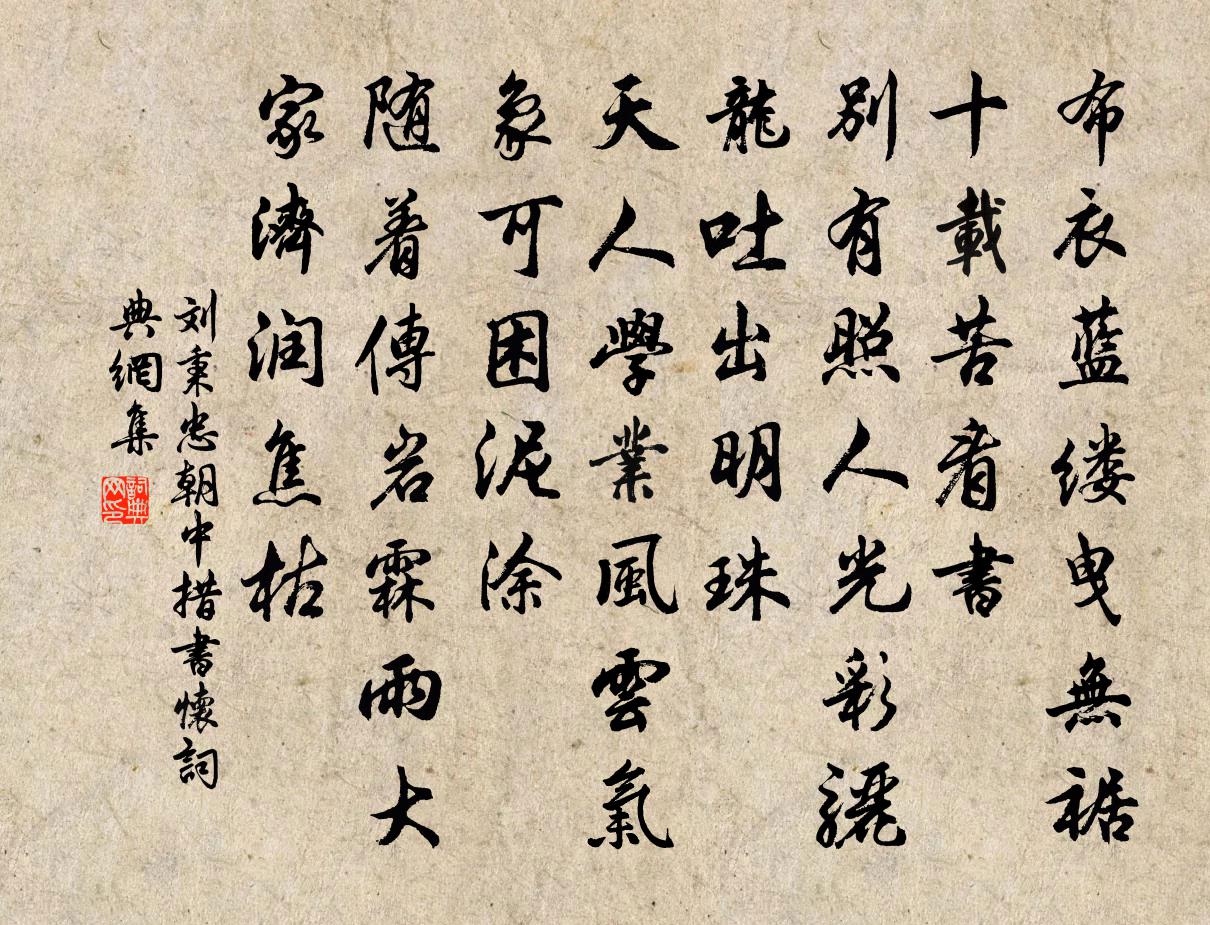 布衣藍缕曳無裾
十載苦看書
别有照人光彩驪
龍吐出明珠
天人學業風雲氣
象可困泥涂
随着傅岩霖雨大
家濟润焦枯
刘秉忠朝中措書懷詞
典網集
詞典网印